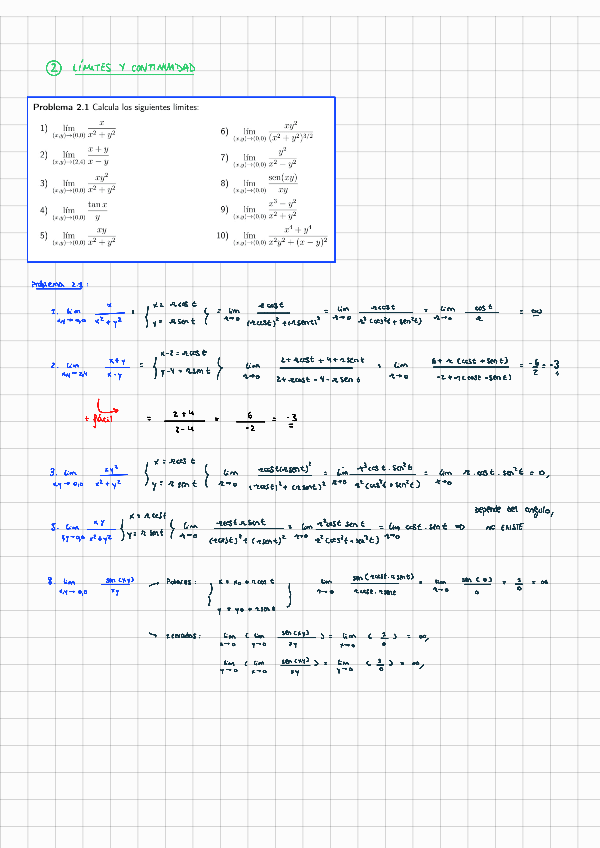 ② LÍMITES Y CONTINUIDAD
Problema 2.1 Calcula los siguientes límites:
1) lím_{(x,y)→(0,0)} x/(x² + y²)
2) lím_{(x,y)→(2,4)} (x + y)/(x − y)
3) lím_{(x,y)→(0,0)} xy²/(x² + y²)
4) lím_{(x,y)→(0,0)} tan x/y
5) lím_{(x,y)→(0,0)} xy/(x² + y²)
6) lím_{(x,y)→(0,0)} xy²/(x² + y²)^{3/2}
7) lím_{(x,y)→(0,0)} y²/(x² − y²)
8) lím_{(x,y)→(0,0)} sen(xy)/xy
9) lím_{(x,y)→(0,0)} (x³ − y²)/(x² + y²)
10) lím_{(x,y)→(0,0)} (x⁴ + y⁴)/(x²y² + (x − y)²)
Problema 2.1:
1. lim_{x,y→0,0} x/(x² + y²) = { x = r cos t, y = r sen t } = lim_{r→0} r cos t/((r cos t)² + (r sen t)²) = lim_{r→0} r cos t/(r² (cos² t + sen² t)) = lim_{r→0} cos t/r = ∞
2. lim_{x,y→2,4} (x+y)/(x-y) = { x-2 = r cos t, y-4 = r sen t } lim_{r→0} (2 + r cos t + 4 + r sen t)/(2 + r cos t - 4 - r sen t) = lim_{r→0} (6 + r (cos t + sen t))/(-2 + r(cos t - sen t)) = -6/2 = -3
+ fácil = (2+4)/(2-4) = 6/-2 = -3
3. lim_{x,y→0,0} xy²/(x² + y²) { x = r cos t, y = r sen t } lim_{r→0} r cos t (r sen t)²/((r cos t)² + (r sen t)²) = lim_{r→0} r³ cos t · sen² t/(r² (cos² t + sen² t)) = lim_{r→0} r · cos t · sen² t = 0,
5. lim_{x,y→0,0} xy/(x² + y²) { x = r cos t, y = r sen t } lim_{r→0} r cos t · r sen t/((r cos t)² + (r sen t)²) = lim_{r→0} r² cos t sen t/(r² (cos² t + sen² t)) = lim_{r→0} cos t · sen t ⇒ Depende del angulo, NO EXISTE
8. lim_{x,y→0,0} sen(xy)/xy → Polares: { x = x₀ + r cos t, y = y₀ + r sen t } lim_{r→0} sen(r cos t · r sen t)/(r cos t · r sen t) = lim_{r→0} sen(0)/0 = 1/0 = ∞
→ reiterados: lim_{x→0} ( lim_{y→0} sen(xy)/xy ) = lim_{x→0} ( 1/0 ) = ∞,
lim_{y→0} ( lim_{x→0} sen(xy)/xy ) = lim_{y→0} ( 1/0 ) = ∞,